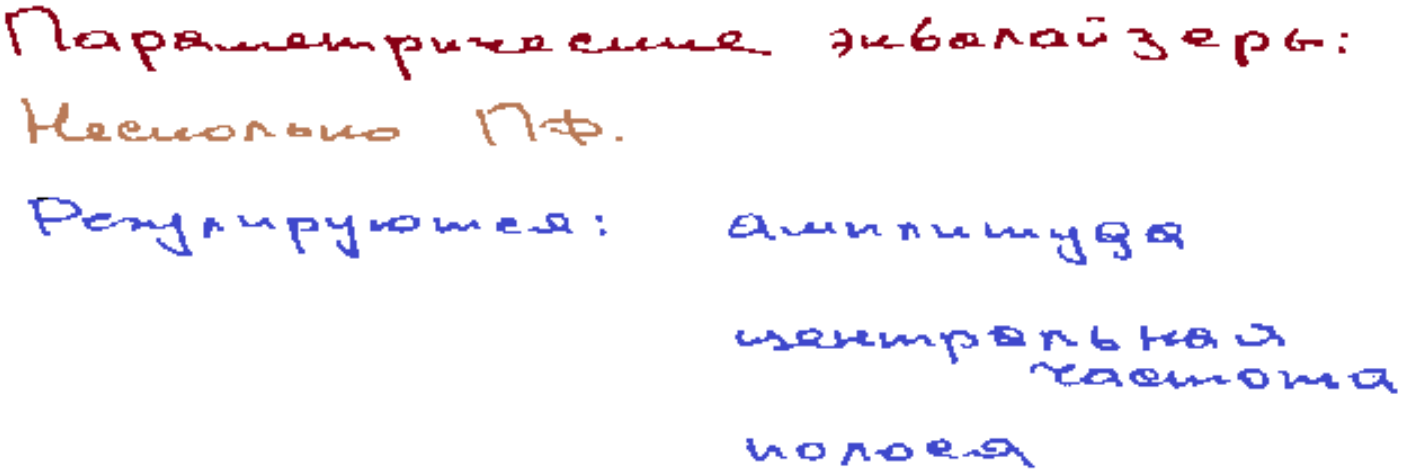 Параметрические эквалайзеры:
Несколько ПФ.
Регулируются: амплитуда
центральная
частота
полоса